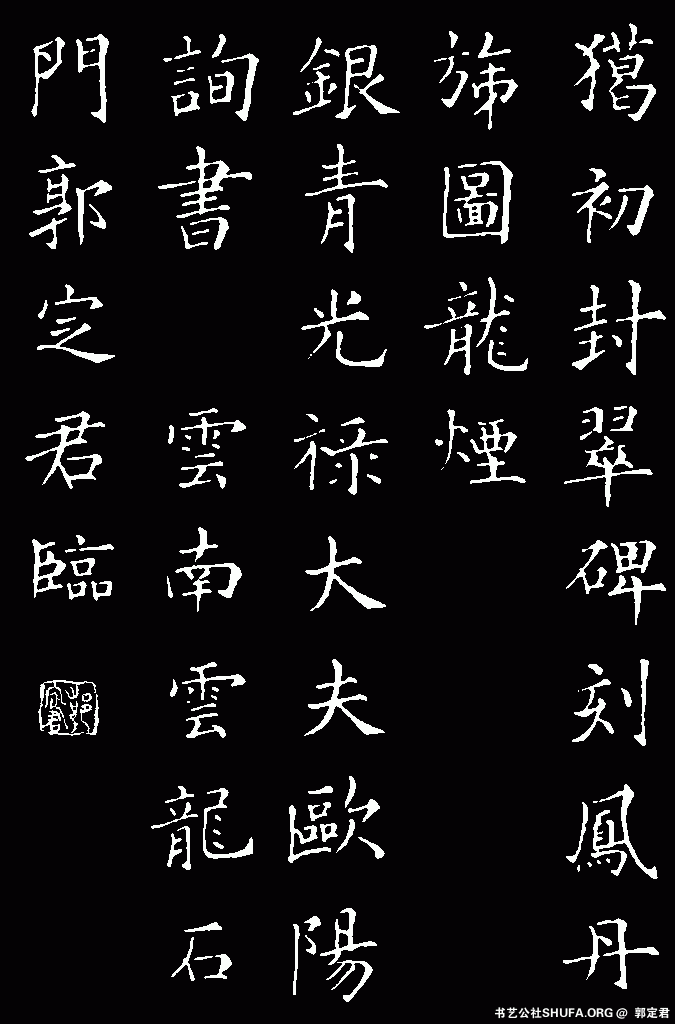 獦初封翠碑刻鳳丹
圖龍煙
銀青光祿大夫歐陽
詢書 雲南雲龍石
門郭定君臨
郭定君
书艺公社SHUFA.ORG @ 郭定君